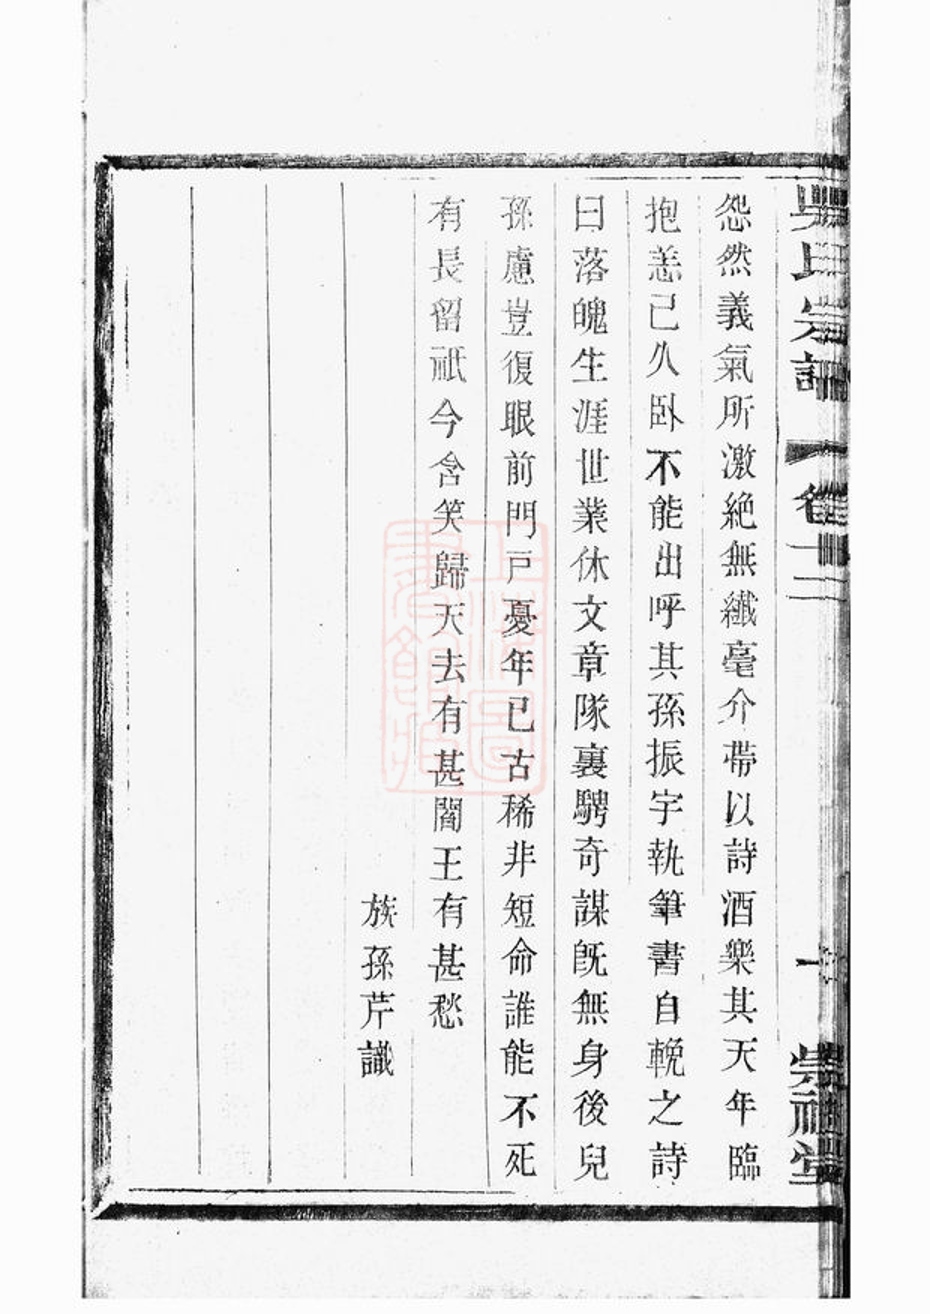 吳氏宗譜
卷十二
崇禮堂
怨然義氣所激絶無纖毫介帶以詩酒樂其天年臨
抱恙已久卧不能出呼其孫振宇執筆書自輓之詩
曰落魄生涯世業休文章隊裏騁奇謀旣無身後兒
孫慮豈復眼前門戸憂年已古稀非短命誰能不死
有長留祇今含笑歸天去有甚閻王有甚愁
族孫芹識